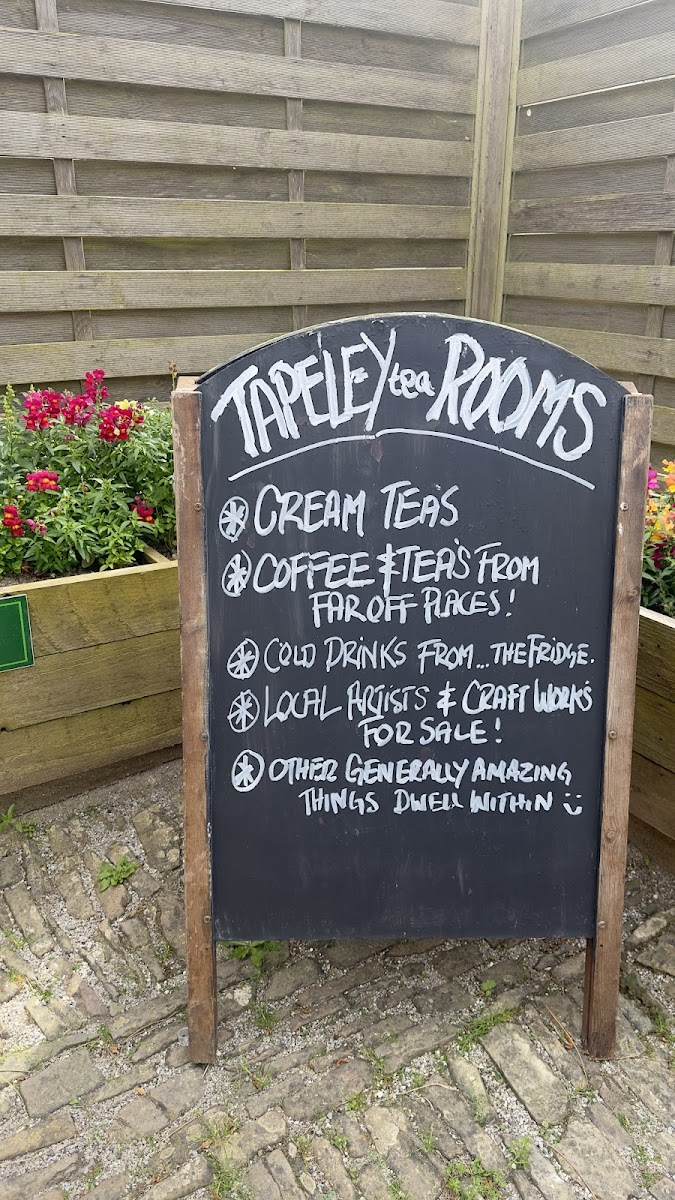 TAPELEY tea ROOMS
CREAM TEA'S
COFFEE & TEA'S FROM
FAR OFF PLACES!
COLD DRINKS FROM... THE FRIDGE.
LOCAL ARTISTS & CRAFT WORKS
FOR SALE!
OTHER GENERALLY AMAZING
THINGS DWELL WITHIN